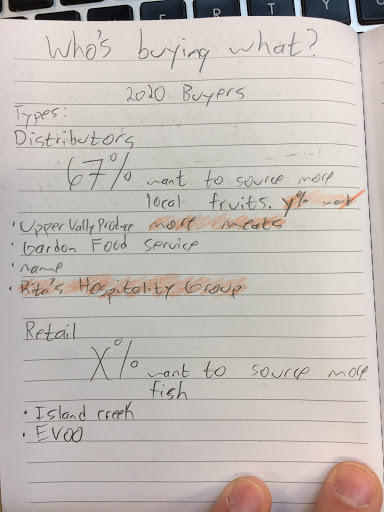 E R T Y
Who's buying what?
2020 Buyers
Types:
Distributors
67% want to source more
local fruits. y% want
• Upper Vally Produce more meats
• Gardon Food Service
• name
• Rita's Hospitality Group
Retail
X% want to source more
fish
• Island creek
• EVOO